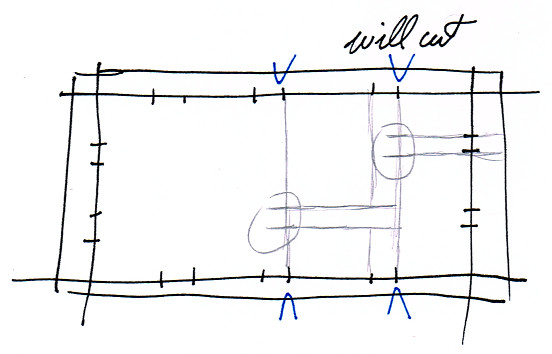 will cut